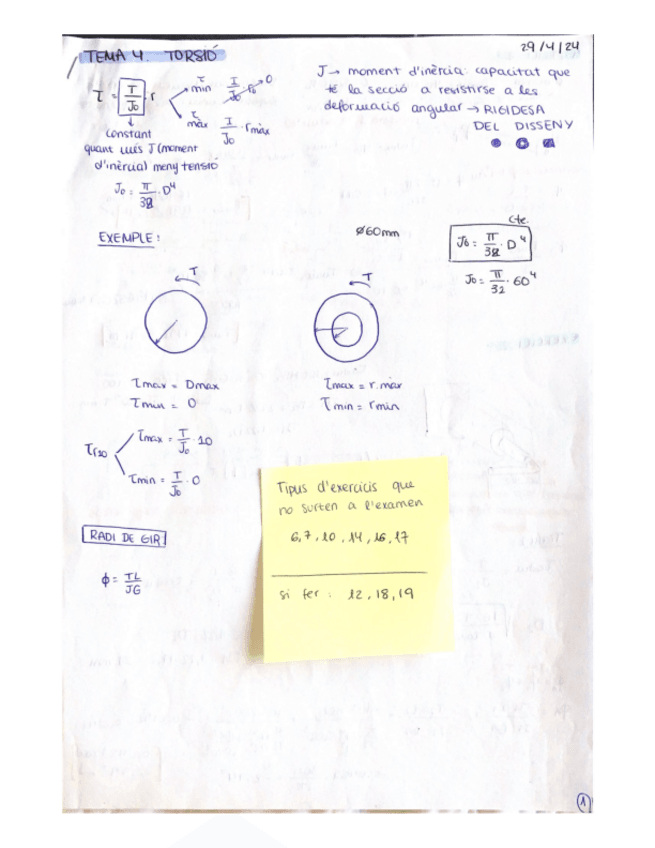 29/4/24
TEMA 4. TORSIÓ
τ = T/J₀ · r
τ min T/J₀ · r₀ → 0
τ màx T/J₀ · rmàx
constant
quant més J (moment
d'inèrcia) meny tensió
J₀ = π/32 · D⁴
J → moment d'inèrcia: capacitat que
té la secció a revistirse a les
deformació angular → RIGIDESA
DEL DISSENY
EXEMPLE:
Ø60mm
cte.
J₀ = π/32 · D⁴
J₀ = π/32 · 60⁴
T
T
τmax = Dmax
τmin = 0
τmax = r.màx
τmin = rmin
τr10
τmax = T/J₀ · 10
τmin = T/J₀ · 0
RADI DE GIR
ϕ = TL/JG
Tipus d'exercicis que
no surten a l'examen
6, 7, 10, 14, 16, 17
si fer: 12, 18, 19
1